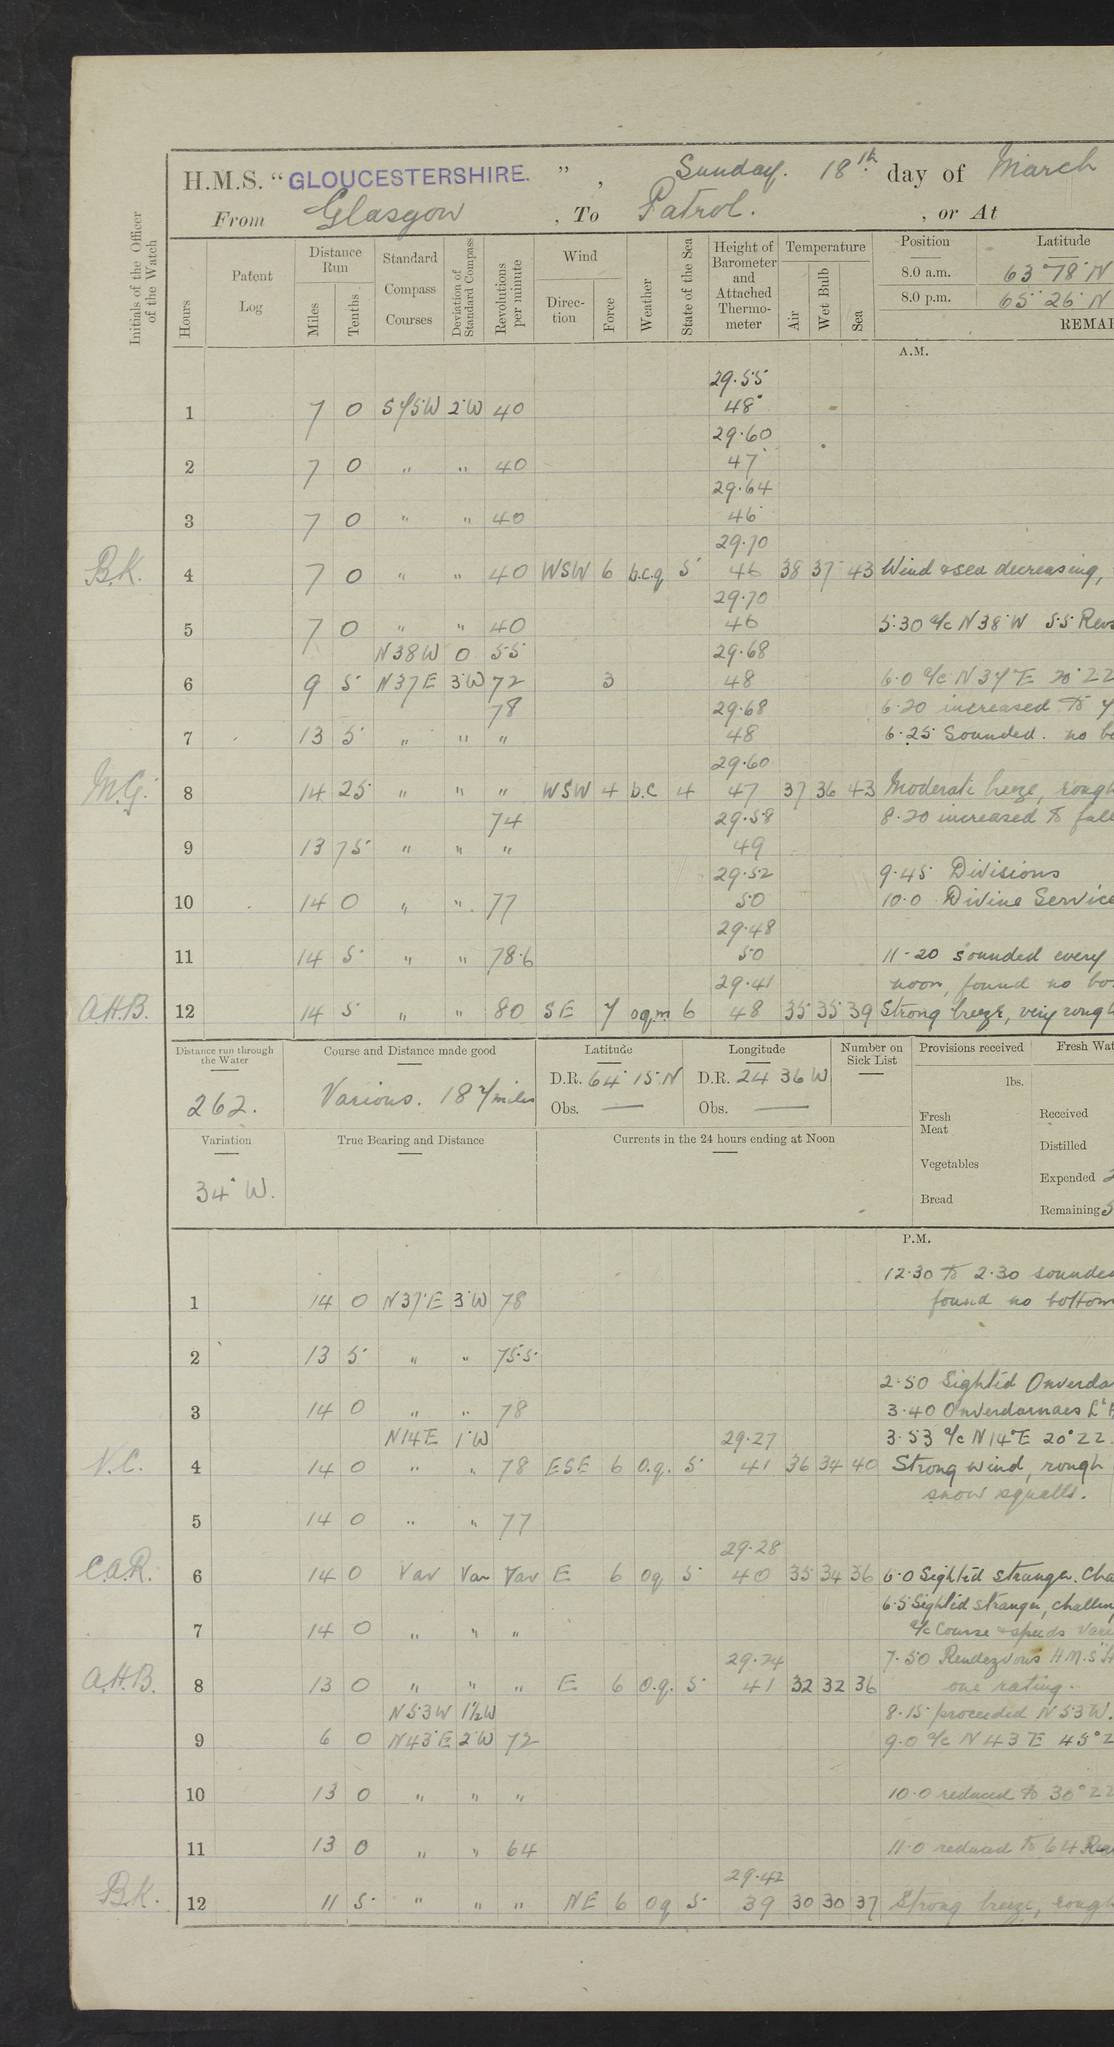 H.M.S. "GLOUCESTERSHIRE.", Sunday. 18th day of March
From Glasgow, To Patrol., or At
Initials of the Officer of the Watch
Hours
Patent Log
Distance Run
Miles
Tenths
Standard Compass Courses
Deviation of Standard Compass
Revolutions per minute
Wind
Direc-tion
Force
Weather
State of the Sea
Height of Barometer and Attached Thermo-meter
Temperature
Air
Wet Bulb
Sea
Position
Latitude
8.0 a.m. 63° 78' N
8.0 p.m. 65° 26' N
REMAR
A.M.
29.55
1 7 0 2°W 40 48°
29.60
2 7 0 " " 40 47
29.64
3 7 0 " " 40 46
29.70
B.K. 4 7 0 " " 40 WSW 6 b.c.q 5 46 38 37 43 Wind & sea decreasing,
29.70
5 7 0 " " 40 46 5.30 a/c N38°W 55 Revs
N38W 0 55 29.68
6 9 5 N37E 3°W 72 3 48 6.0 a/c N37°E 20°22
78 29.68 6.20 increased to 7
7 13 5 " " " 48 6.25 Sounded. no bo
29.60
M.G. 8 14 25 " " " WSW 4 b.c 4 47 37 36 43 Moderate breeze, rough
74 29.58 8.20 increased to full
9 13 75 " " " 49
29.52 9.45 Divisions
10 14 0 " " 77 50 10.0 Divine Service
29.48
11 14 5 " " 78.6 50 11.20 sounded every
29.41 noon, found no bo
A.H.B. 12 14 5 " " 80 SE 7 oq.m 6 48 35 35 39 Strong breeze, very rough
Distance run through the Water
262.
Course and Distance made good
Various. 187 miles
Latitude
D.R. 64° 15' N
Obs. —
Longitude
D.R. 24 36 W
Obs. —
Number on Sick List
Provisions received
lbs.
Fresh Meat
Vegetables
Bread
Fresh Wat
Received
Distilled
Expended 2
Remaining 5
Variation
34° W.
True Bearing and Distance
Currents in the 24 hours ending at Noon
P.M.
12.30 to 2.30 sounded
1 14 0 N37°E 3°W 78 found no bottom
2 13 5 " " 75.5
2.50 Sighted Onverda
3 14 0 " " 78 3.40 Onverdarnaes Lt
N14E 1°W 29.27 3.53 a/c N14°E 20°22.
N.C. 4 14 0 " " 78 ESE 6 o.q. 5 41 36 34 40 Strong wind, rough
snow squalls.
5 14 0 " " 77
29.28
C.A.R. 6 14 0 Var Var Var E 6 oq 5 40 35 34 36 6.0 Sighted stranger. Cha
6.5 Sighted stranger, challen
7 14 0 " " " a/c Course & speeds vari
29.24 7.50 Rendezvous H.M.S "H
A.H.B. 8 13 0 " " " E 6 o.q. 5 41 32 32 36 one rating.
N53W 1½W 8.15 proceeded N53W.
9 6 0 N43°E 2°W 72 9.0 a/c N43°E 45°2
10 13 0 " " " 10.0 reduced to 30°22
11 13 0 " " 64 11.0 reduced to 64 Rev
29.42
B.K. 12 11 5 " " " NE 6 oq 5 39 30 30 37 Strong breeze, rough